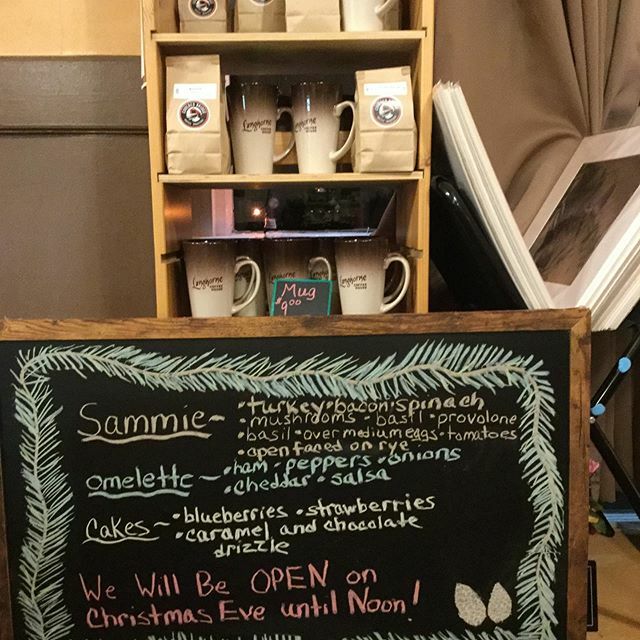 Langhorne
COFFEE
HOUSE
Langhorne
COFFEE
HOUSE
Langhorne
COFFEE
HOUSE
Langhorne
Langhorne
COFFEE
HOUSE
Mug
$9.00
Sammie ~ • turkey • bacon • spinach
• mushrooms • basil • provolone
• basil • over medium eggs • tomatoes
• open faced on rye
omelette ~ • ham • peppers • onions
• cheddar • salsa
Cakes ~ • blueberries • strawberries
• caramel and chocolate
drizzle
We Will Be OPEN on
Christmas Eve until Noon!